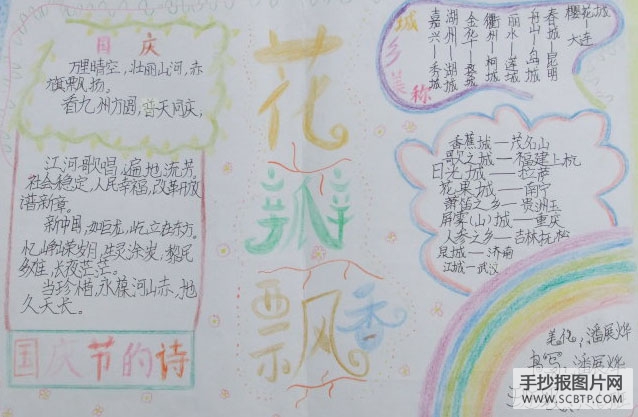 国庆
万里晴空,壮丽山河,赤
旗飘扬。
看九州方圆,普天同庆,
江河歌唱,遍地流芳。
社会稳定,人民幸福,改革开放
谱新章。
新中国,如巨龙,屹立在东方。
忆峥嵘岁月,生灵涂炭,黎民
多难,长夜茫茫。
当珍惜,永葆河山赤,地
久天长。
国庆节的诗
花
瓣
飘香
城乡美称
嘉兴—秀城
湖州—湖城
金华—婺城
衢州—柯城
丽水—莲城
舟山—岛城
春城—昆明
樱花城—大连
香蕉城—茂名山
歌之城—福建上杭
日光城—拉萨
花果城—南宁
屏雾(山)城—重庆
人参之乡—吉林抚松
泉城—济南
江城—武汉
美化:潘展烨
书写:潘展烨
手抄报图片网
WWW.SCBTP.COM